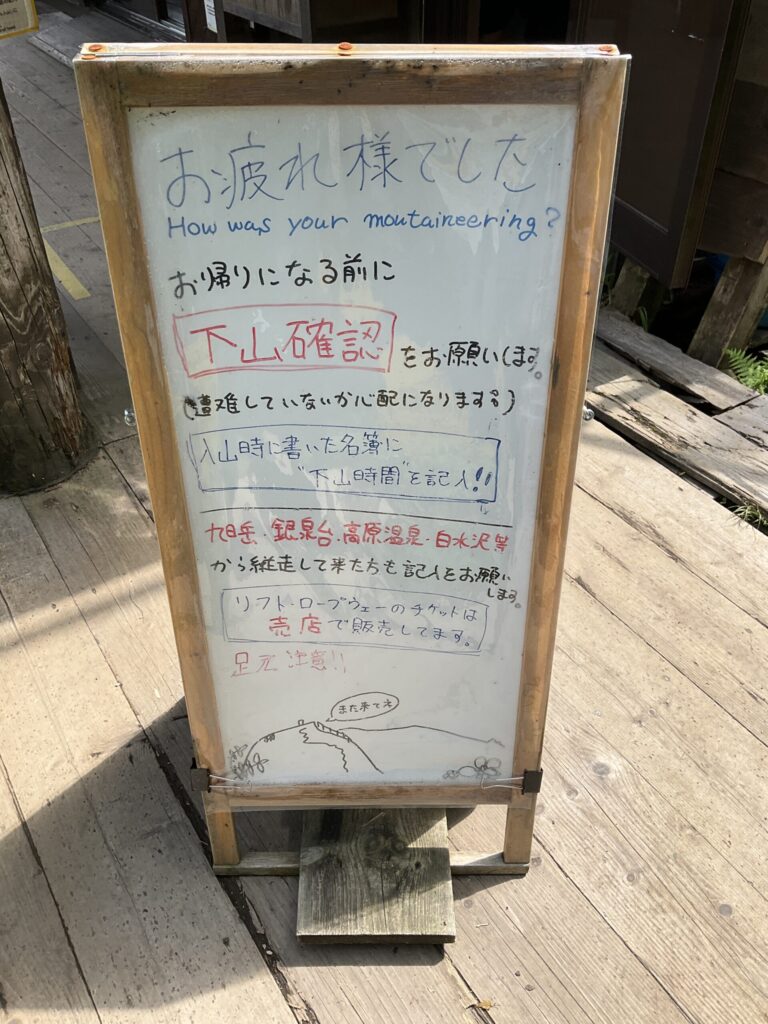 お疲れ様でした
How was your moutaineering?
お帰りになる前に
下山確認をお願いします。
(遭難していないか心配になります。)
入山時に書いた名簿に
"下山時間"を記入!!
旭岳・銀泉台・高原温泉・白水沢等
から縦走して来た方も記入をお願いします。
リフト・ロープウェーのチケットは
売店で販売してます。
足元注意!!
また来てネ